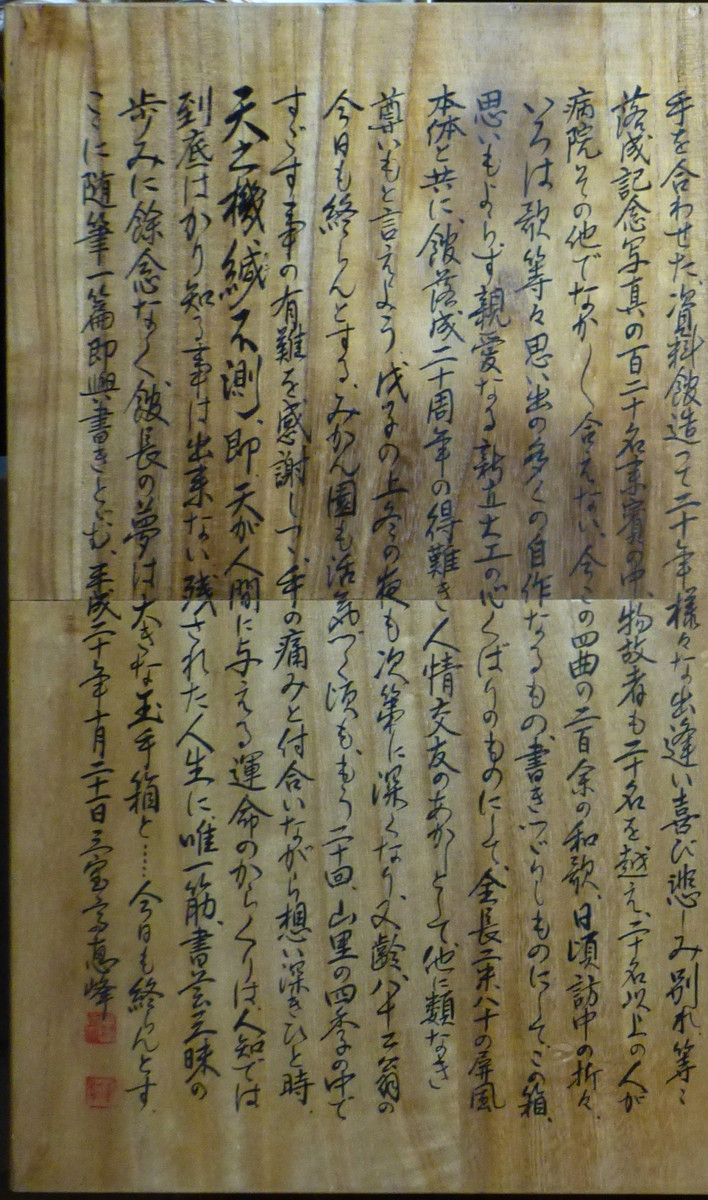 手を合わせた、資料館造って二十年様々な出逢い喜び悲しみ別れ、等々
落成記念写真の百二十名来賓の中、物故者も二十名を越え、二十名以上の人が
病院その他でなか〱会えない、今この四曲の二百余の和歌、日頃訪中の折々、
いろは歌等々思い出の多くの自作なるもの、書きつづりしものにしてこの箱、
思いもよらず親愛なる新立大工の心くばりのものにして、全長二米八十の屏風
本体と共に、館落成二十周年の得難き人情交友のあかしとして他に類なき
尊いもと言えよう、戊子の上冬の夜も次第に深くなり、又齢八十二翁の
今日も終らんとする、みかん園も活気づく頃も、もう二十回、山里の四季の中で
すごす事の有難を感謝しつゝ、手の痛みと付合いながら想い深きひと時、
天之機緘不測、即、天が人間に与える運命のからくりは、人知では
到底はかり知る事は出来ない、残された人生に、唯一筋、書芸三昧の
歩みに餘念なく、館長の夢は大きな玉手箱と……今日も終らんとす
こゝに随筆一篇即興書きとゞむ、平成二十年十月二十一日三宝亭恵峰